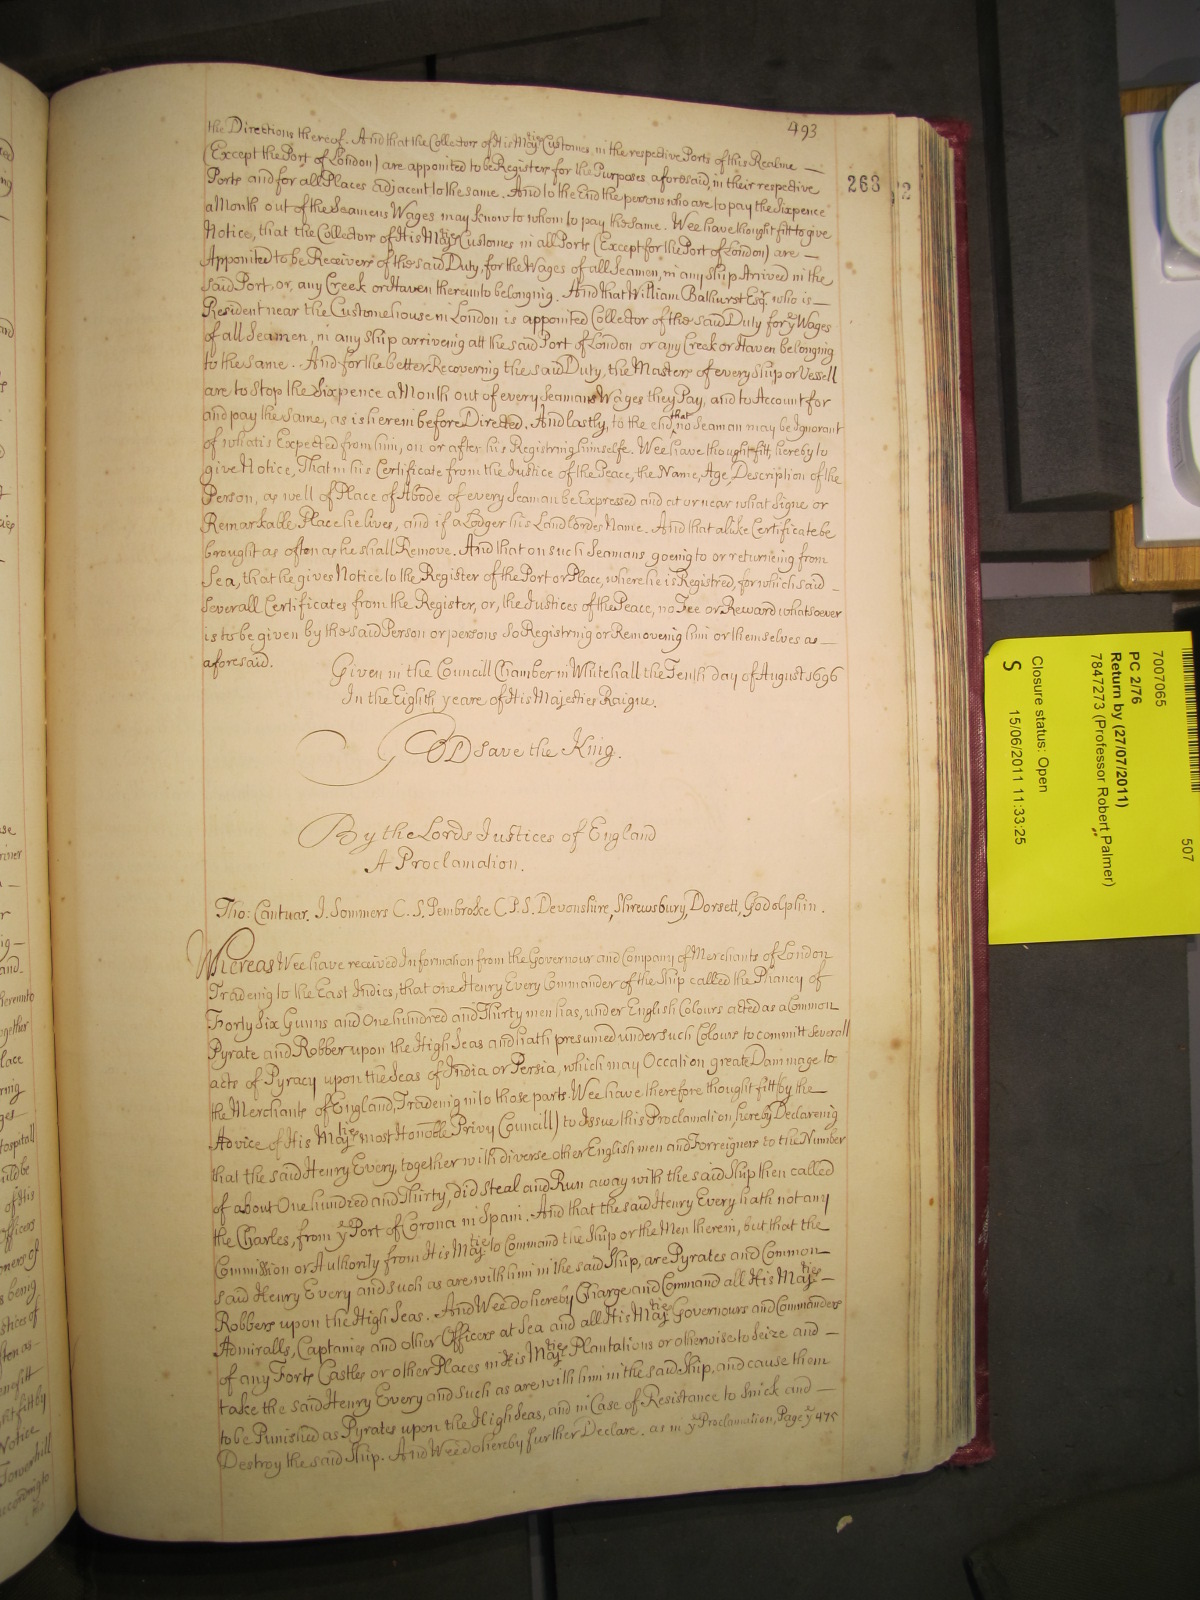 493
263
the Directions thereof. And that the Collectors of His Maj:ties Customes, in the respective Ports of this Realme —
(Except the Port of London) are appointed to be Registers for the Purposes aforesaid, in their respective
Ports and for all Places adjacent to the same. And to the End the persons who are to pay the Sixpence
a Month out of the Seamens Wages may know to whom to pay the same. Wee have thought fitt to give
Notice, that the Collectors of His Maj:ties Customes in all Ports (Except for the Port of London) are —
Appointed to be Receivers of the said Duty, for the Wages of all Seamen, in any Ship Arrived in the
said Port, or, any Creek or Haven thereunto belonging. And that William Bathurst Esqr. who is —
Resident near the Customehouse in London is appointed Collector of the said Duty for ye Wages
of all Seamen, in any Ship arriveing att the said Port of London or any Creek or Haven belonging
to the same. And for the better Recovering the said Duty, the Masters of every Ship or Vessell
are to Stop the Sixpence a Month out of every Seamans Wages they Pay, and to Account for
and pay the same, as is herein before Directed. And lastly, to the end that no Seaman may be Ignorant
of what is Expected from him, on or after his Registring himselfe. Wee have thought fitt, hereby to
give Notice, That in his Certificate from the Justice of the Peace, the Name, Age, Description of the
Person, as well of Place of Abode of every Seaman be Expressed and at or near what Signe or
Remarkable Place he lives, and if a Lodger his Landlordes Name. And that alike Certificate be
brought as often as he shall Remove. And that on such Seamans goeing to or returneing from
Sea, that he gives Notice to the Register of the Port or Place, where he is Registred, for which said —
severall Certificates from the Register, or, the Justices of the Peace, no Fee or Reward whatsoever
is to be given by the said Person or persons so Registring or Removeing him or themselves as —
aforesaid.
Given in the Councill Chamber in Whitehall the Tenth day of August 1696
In the Eighth yeare of His Majesties Raigne.
GOD save the King.
By the Lords Justices of England
A Proclamation.
Tho: Cantuar. J. Sommers C. S. Pembroke C. P. S. Devonshire, Shrewsbury, Dorsett, Godolphin.
Whereas Wee have received Information from the Governour and Company of Merchants of London
Tradeing to the East Indies, that one Henry Every Commander of the Ship called the Phancy of
Forty Six Gunns and One hundred and Thirty men has, under English Colours acted as a Common
Pyrate and Robber upon the High Seas and hath presumed under such Colours to committ severall
acts of Pyracy upon the Seas of India or Persia, which may Occation greate Dammage to
the Merchants of England, Tradeing into those parts. Wee have therefore thought fitt (by the
Advice of His Maj:ties most Honoble Privy Councill) to Issue this Proclamation, hereby Declareing
that the said Henry Every, together with diverse other English men and Forreigners to the Number
of about One hundred and Thirty, did Steal and Run away with the said Ship then called
the Charles, from ye Port of Corona in Spain. And that the said Henry Every hath not any
Commission or Authority from His Maj:tie to Command the Ship or the Men therein, but that the
said Henry Every and such as are with him in the said Ship, are Pyrates and Common
Robbers upon the High Seas. And Wee do hereby Charge and Command all His Maj:ties —
Admiralls, Captaines and other Officers at Sea and all His Maj:ties Governours and Commanders
of any Forts Castles or other Places in His Maj:ties Plantations or otherwise to Seize and —
take the said Henry Every and such as are with him in the said Ship, and cause them
to be Punished as Pyrates upon the High Seas, and in Case of Resistance to Sinck and —
Destroy the said Ship. And Wee do hereby further Declare. as in ye Proclamation, Page ye 475
7007065
507
PC 2/76
Return by (27/07/2011)
7847273 (Professor Robert Palmer)
Closure status: Open
S 15/06/2011 11:33:25